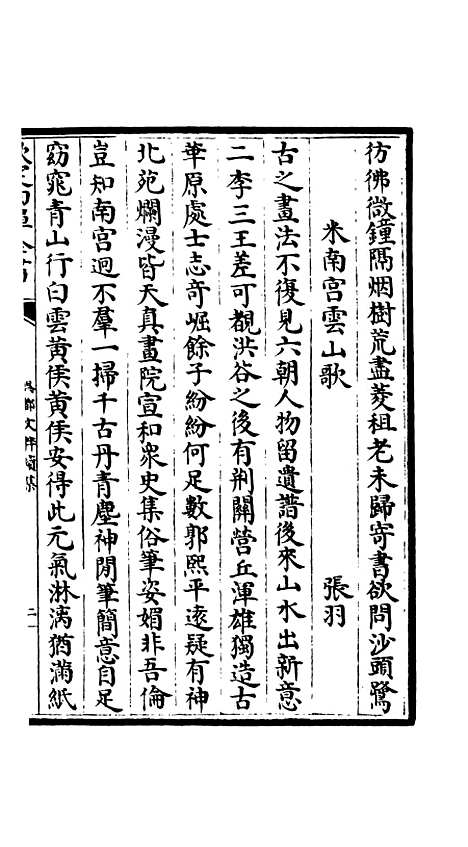 彷彿微鐘隔烟樹荒盡菱祖老未歸寄書欲問沙頭鷺
米南宮雲山歌　張羽
古之畫法不復見六朝人物留遺譜後來山水出新意
二李三王差可覩洪谷之後有荆關營丘渾雄獨造古
華原處士志奇崛餘子紛紛何足數郭熙平逺疑有神
北苑爛漫皆天真畫院宣和衆史集俗筆姿媚非吾倫
豈知南宮迥不羣一掃千古丹青塵神閒筆簡意自足
窈窕青山行白雲黄侯黄侯安得此元氣淋漓猶滿紙
吳都文粹續集